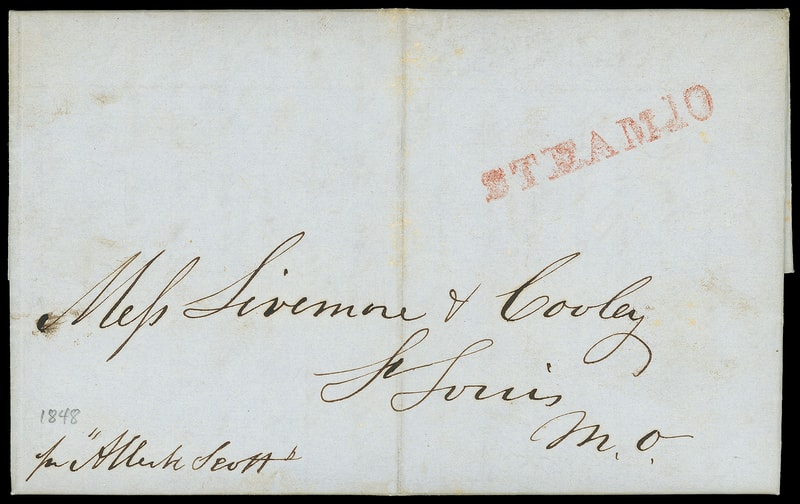 STEAM 10
Mess Livemore & Cooley
St Louis
M.O.
1848
per "Albert Scott"